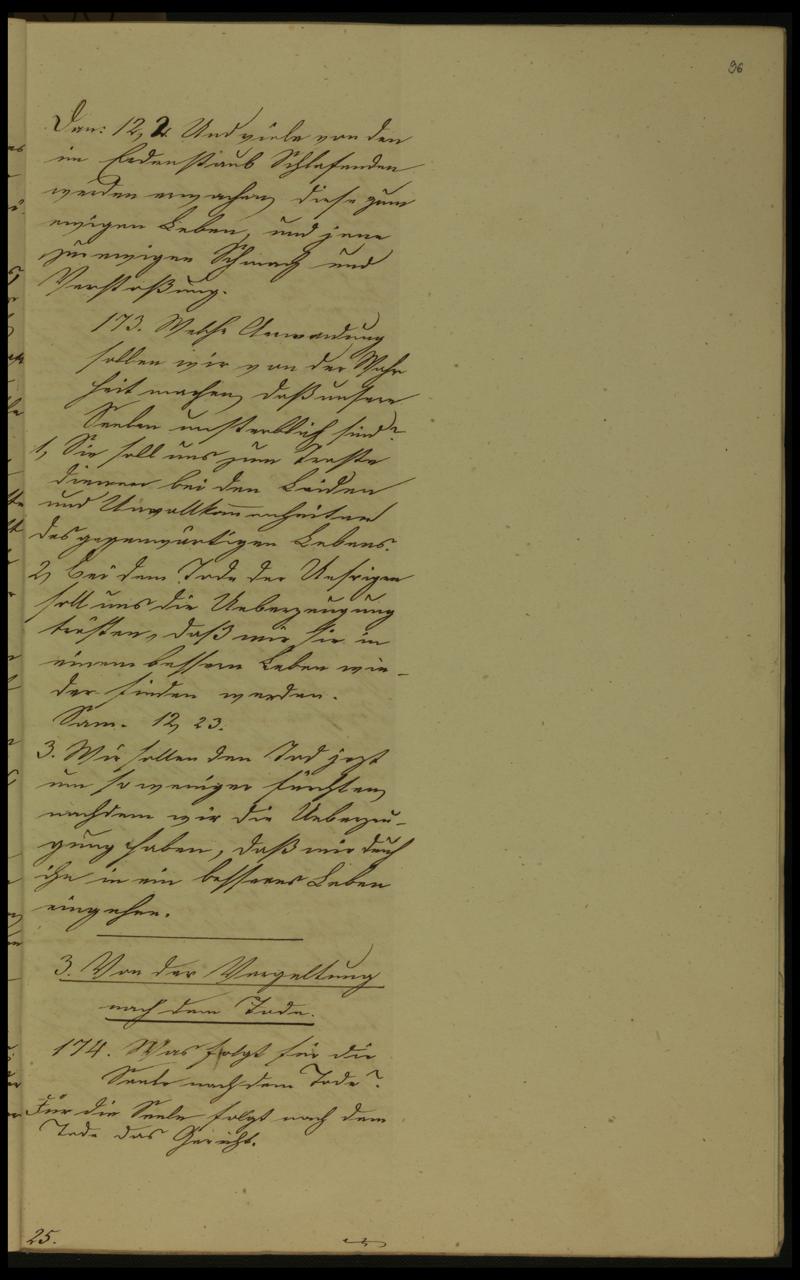 96
Dan: 12, 2. Und viele von den
im Erdenstaub Schlafenden
werden erwachen, diese zum
ewigen Leben, und jene
zur ewigen Schmach und
Verstoßung.
173. Welche Anwendung
sollen wir von der Wahr
heit machen, daß unsere
Seelen unsterblich sind?
1, Sie soll uns zum Troste
dienen bei den Leiden
und Unvollkom̄enheiten
des gegenwärtigen Lebens.
2, Bei dem Tode der Unsrigen
soll uns die Ueberzeugung
trösten, daß wir sie in
einem bessern Leben wie-
der finden werden.
Sam. 12, 23.
3. Wir sollen den Tod jezt
um so weniger fürchten,
nachdem wir die Ueberzeu-
gung haben, daß wir durch
ihn in ein besseres Leben
eingehen.
3. Von der Vergeltung
nach dem Tode.
174. Was folgt für die
Seele nach dem Tode?
Für die Seele folgt nach dem
Tode das Gericht.
25.